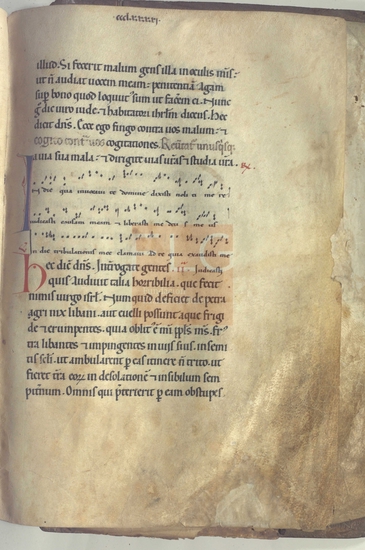 ·cclxxxxvi·
illud. Si fecerit malum gens illa in oculis m̄s·
ut n̄ audiat uocem meam· penitentiā agam
sup bono quod locutus sum ut facerem ei. Nunc
g̊ dic uiro iude· ⁊ habitatori ihrl̄m dicens. Hec
dicit dn̄s. Ecce ego fingo contra uos malum· ⁊
cogito cont̄ uos cogitationes. Reūtat̄ unusq̇sq;
a uia sua mala· ⁊ dirigite uias ur̄as ⁊ studia ur̄a.
In die qua inuocaui te domine dixisti noli
iudicasti causam meam ⁊ liberasti me dn̄s meus
In die tribulationis mee clamaui ad te quia exaudisti me
Hec dicit dn̄s. Int̄rogate gentes. Iudicasti
quis audiuit talia horribilia. que fecit
nimis uirgo isrl̄. Numquid deficiet de petra
agri nix libani. aut euelli possunt aque frigi
de ⁊ erumpentes. quia oblit̄ ē m̄i ppl̄s m̄s. fr̄
tra libantes ⁊ impingentes in uiis suis. in semi
tis scl̄i. ut ambularent p eas itinere n̄ trito. ut
fieret t̄ra eoꝝ in desolationē ⁊ in sibilum sem
pit̄num. Omnis qui p̄terierit p eam obstupes